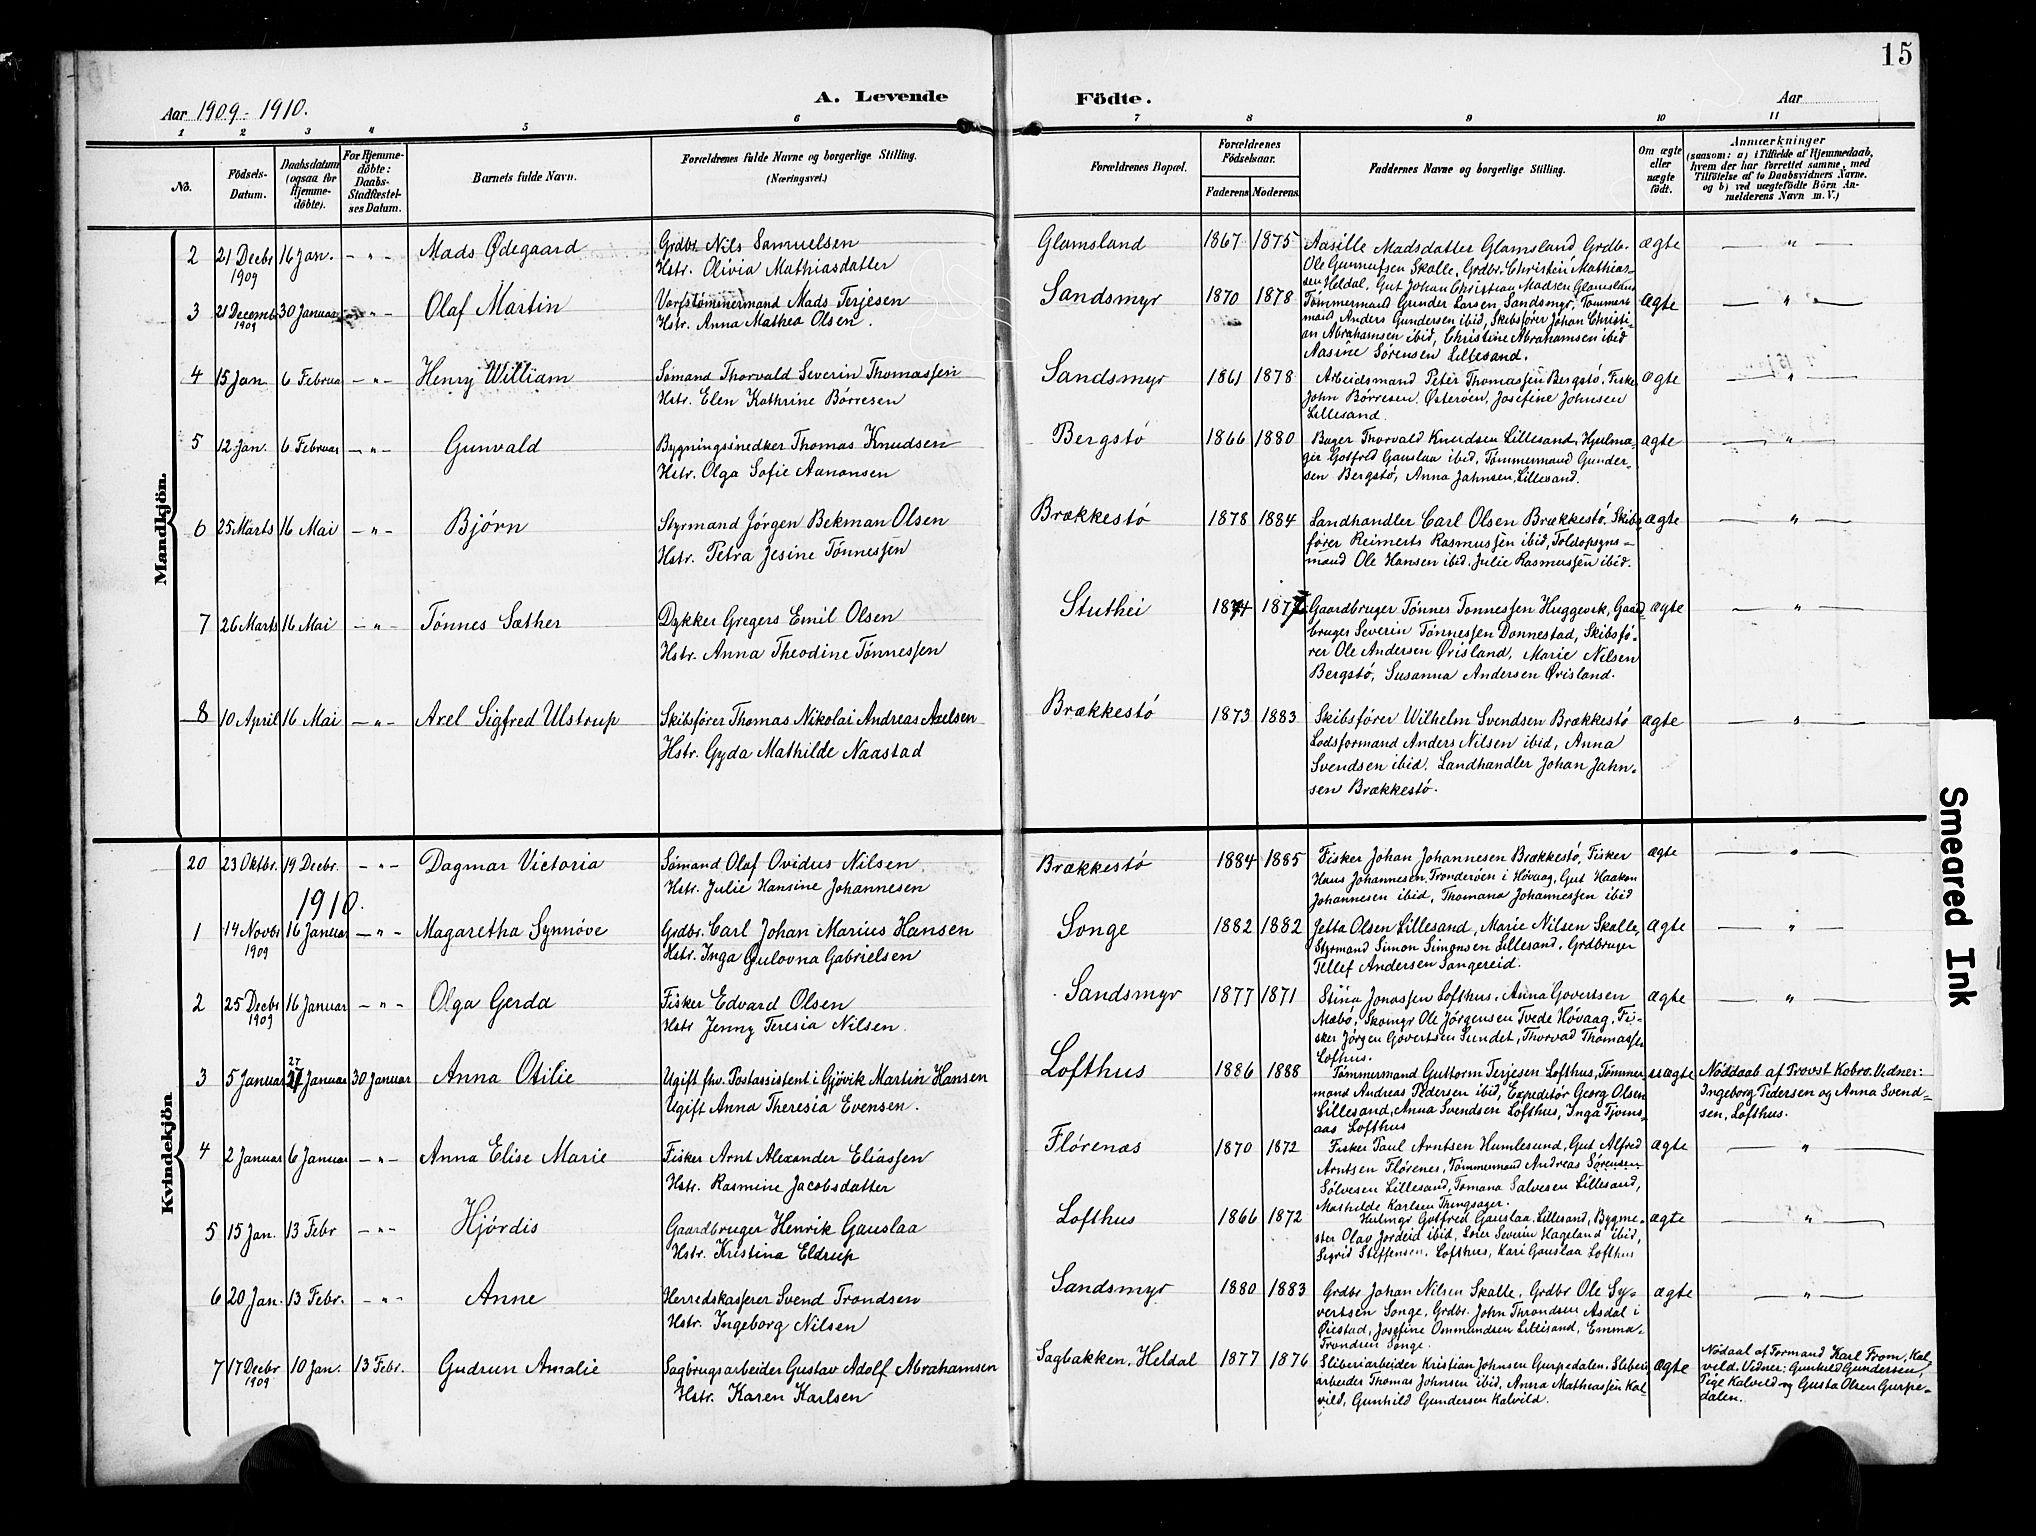 15
Aar 1909-1910.
A. Levende
Födte.
Aar
1 2 3 4 5 6 7 8 9 10 11
No.
Födsels-
Datum.
Daabsdatum
(ogsaa for
Hjemme-
döbte).
For Hjemme-
döbte:
Daabs-
Stadfæstel-
ses Datum.
Barnets fulde Navn.
Forældrenes fulde Navne og borgerlige Stilling.
(Næringsvei.)
Forældrenes Bopæl.
Forældrenes
Födselsaar.
Faderens. Moderens.
Faddernes Navne og borgerlige Stilling.
Om ægte
eller
uægte
födt.
Anmærkninger
(saasom: a) i Tilfælde af Hjemmedaab,
hvem der har forrettet samme, med
Tilföielse af to Daabsvidners Navne,
og b) ved uægtefödte Börn An-
melderens Navn m. V.)
Mandkjön.
2 21 Decbr 1909 16 Jan. - " - Mads Ødegaard
Grdbr. Nils Samuelsen
Hstr. Olivia Mathiasdatter
Glamsland 1867 1875
Aasille Madsdatter Glamsland, Grdb.
Ole Gunnufsen Skalle, Grdbr. Christen Mathias-
sen Heldal, Gut Johan Christian Madsen Glamsland
ægte - " -
3 21 Decemb 1909 30 Januar " - Olaf Martin
Værfstømmermand Mads Terjesen
Hstr. Anna Mathea Olsen.
Sandsmyr 1870 1878
Tømmermand Gunder Larsen, Sandsmyr, Tømmer-
mand Anders Gundersen ibid, Skibsfører Johan Christi-
an Abrahamsen ibid, Christine Abrahamsen ibid
Aasine Sørensen Lillesand.
ægte - " -
4 15 Jan. 6 Februa - " - Henry William
Sømand Thorvald Severin Thomassen
Hstr. Elen Kathrine Børresen
Sandsmyr 1861 1878
Arbeidsmand Peter Thomassen Bergstø, Fisker
John Børresen, Østerøen, Josefine Johnsen
Lillesand.
ægte - " -
5 12 Jan. 6 Februar - " - Gunvald
Bygningssnedker Thomas Knudsen
Hstr. Olga Sofie Aanonsen
Bergstø 1866 1880
Bager Thorvald Knudsen Lillesand, Hjulma-
ger Gotfred Gauslaa ibid, Tømmermand Gunder-
sen Bergstø, Anna Jahnsen, Lillesand.
ægte - " -
6 25 Marts 16 Mai - " - Bjørn
Styrmand Jørgen Bekman Olsen
Hstr. Petra Jesine Tønnessen
Brækkestø 1878 1884
Landhandler Carl Olsen Brækkestø, Skibs
fører Reimerts Rasmussen ibid, Toldopsyns-
mand Ole Hansen ibid, Julie Rasmussen ibid.
ægte - " -
7 26 Marts 16 Mai - " - Tønnes Sæther
Dykker Gregers Emil Olsen
Hstr. Anna Theodine Tønnessen
Stuthei 1874 1877
Gaardbruger Tønnes Tonnessen Huggevik, Gaard
bruger Severin Tønnessen Donnestad, Skibsfø-
rer Ole Andersen Ørisland, Marie Nilsen
Bergstø, Susanna Andersen Ørisland.
ægte - " -
8 10 April 16 Mai - " - Axel Sigfred Ulstrup
Skibsfører Thomas Nikolai Andreas Axelsen
Hstr. Gyda Mathilde Naastad
Brækkestø 1873 1883
Skibsfører Wilhelm Svendsen Brækkestø
Lodsformand Anders Nilsen ibid, Anna
Svendsen ibid. Landhandler Johan Jahn-
sen Brækkestø.
ægte - " -
Kvindekjön
20 23 Oktbr. 19 Decbr. - " - Dagmar Victoria
Sømand Olaf Ovidus Nilsen
Hstr. Julie Hansine Johannesen
Brækkestø 1884 1885
Fisker Johan Johannesen Brækkestø, Fisker
Hans Johannesen, Tronderøen i Høvaag, Gut Haakon
Johannesen ibid, Thomana Johannessen ibid
ægte - " -
1910.
1 14 Novbr 1909 16 Januar - " - Magaretha Synnøve
Grdbr. Carl Johan Marius Hansen
Hstr. Inga Gulovna Gabrielsen
Songe 1882 1882
Jetta Olsen Lillesand, Marie Nilsen Skalle,
Styrmand Simon Simonsen Lillesand, Grdbruger
Tellef Andersen Sangereid.
ægte - " -
2 25 Decbr 1909 16 Januar - " - Olga Gerda
Fisker Edvard Olsen
Hstr Jenny Teresia Nilsen.
Sandsmyr 1877 1871
Stina Jonassen Lofthus, Anna Govertsen
Mæbø, Skomgr Ole Jørgensen Tvede Høvaag, Fi-
sker Jørgen Govertsen Sundet, Thorvad Thomassen
Lofhus.
ægte - " -
3 5 Januar 27 27 Januar 30 Januar Anna Otilie
Ugift fhv. Postassistent i Gjøvik Martin Hansen
Ugift Anna Theresia Evensen.
Lofthus 1886 1888
Tømmermand Guttorm Terjesen Lofthus, Tømmer
mand Andreas Pedersen ibid, Expeditør Georg Olsen
Lillesand, Anna Svendsen Lofthus, Inga Tjoms-
aas Lofthus
uægte
Nøddaab af Provst Kobro. Vidner:
Ingeborg Pedersen og Anna Svend-
sen, Lofthus.
4 2 Januar 6 Januar - " - Anna Elise Marie
Fisker Arnt Alexander Eliassen
Hstr. Rasmine Jacobsdatter
Flørenæs 1870 1872
Fisker Paul Arntsen Humlesund, Gut Alfred
Arntsen Flørenes, Tømmermand Andreas Sørensen
Sølvesen Lillesand, Tomana Salvesen Lillesand,
Mathilde Karlsen Thingsager.
ægte - " -
5 15 Jan. 13 Febr - " - Hjørdis
Gaardbruger Henrik Gauslaa
Hstr. Kristina Eldrup
Lofthus 1866 1872
Hulmgr Gotfred Gauslaa Lillesand, Bygme-
ster Olav Jordeid ibid, Lærer Severin Hageland ibid,
Sigrid Steffensen, Lofthus, Kari Gauslaa Lofthus
ægte - " -
6 20 Jan. 13 Febr. - " - Anne
Herredskasserer Svend Trondsen
Hstr. Ingeborg Nilsen
Sandsmyr 1880 1883
Grdbr Johan Nilsen Skalle, Grdbr Ole Sy-
vertsen Songe, Grdbr. John Throndsen Asdal i
Øiestad, Josefine Ommundsen Lillesand, Emma
Trondsen Songe.
ægte - " -
7 17 Decbr 1909 10 Jan. 13 Febr. Gudrun Amalie
Sagbrugsarbeider Gustav Adolf Abrahamsen
Hstr. Karen Karlsen
Sagbakken, Heldal 1877 1876
Sliberiarbeider Kristian Johnsen Gurpedalen, Sliberi
arbeider Thomas Johnsen ibid, Anna Mathiassen Kal-
vild, Gunhild Gundersen Kalvild.
ægte
Nødaal af Formand Karl From, Kal-
veld. Vidner: Gunhild Gundersen,
Pige Kalvild og Gusta Olsen Gurpe-
dalen.
Smeared Ink